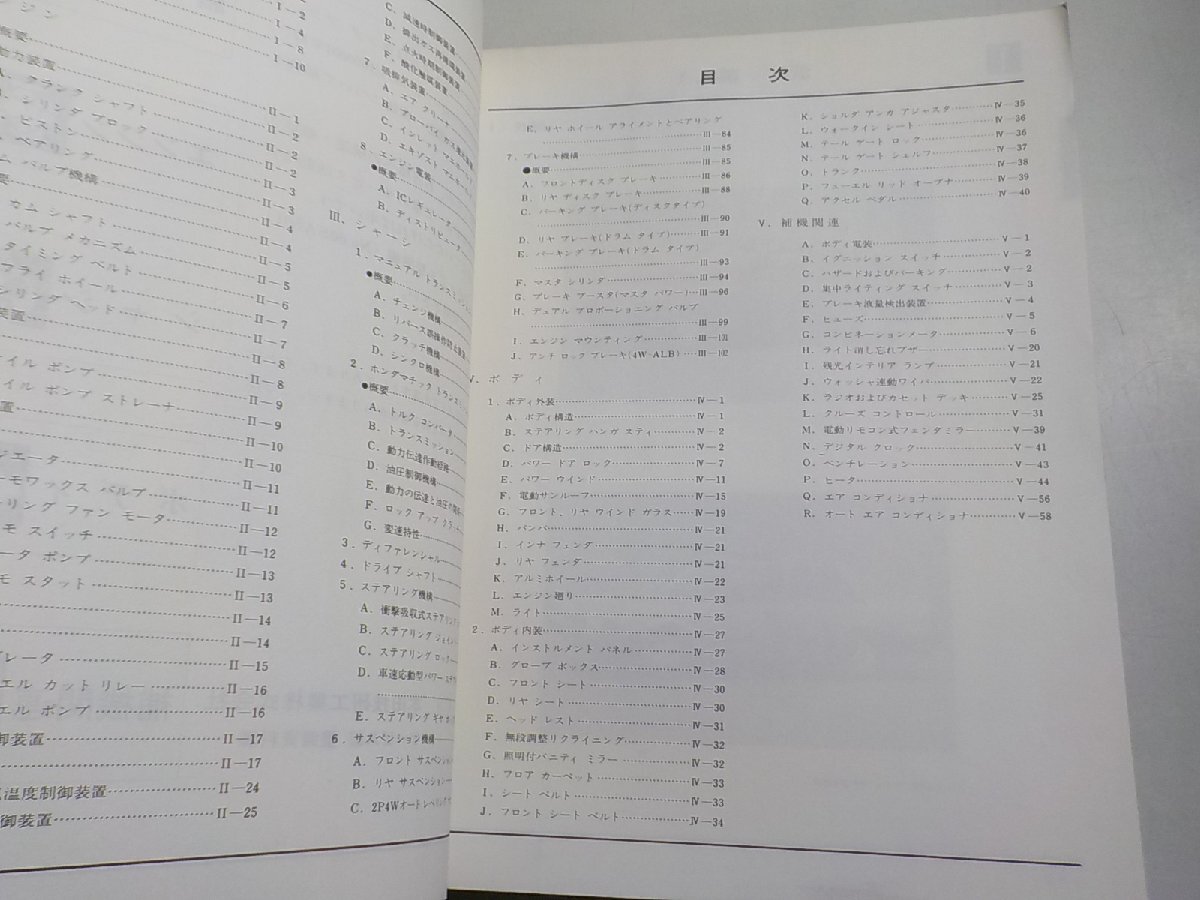 ジン
I－2
I－4
I－8
I－10
概要
動力装置
A. クランク シャフト II－1
シリンダ ブロック II－2
ピストン II－2
ベアリング II－2
ム バルブ機構 II－3
要 II－3
カム シャフト II－4
バルブ メカニズム II－4
タイミング ベルト II－5
フライ ホイール II－5
シリンダ ヘッド II－6
装置 II－7
II－7
イル ポンプ II－8
イル ポンプ ストレーナ II－8
置 II－9
II－9
ジエータ II－10
ーモワックス バルブ II－10
ーリング ファン モータ II－11
モ スイッチ II－11
ータ ポンプ II－12
モ スタット II－12
II－13
II－13
II－14
II－14
ブレータ II－15
エル カット リレー II－16
エル ポンプ II－16
御装置 II－17
II－17
温度制御装置 II－24
御装置 II－25
C. 減速時制御装置
D. 排出ガス再循環装置
E. 点火時期制御装置
F. 酸化触媒装置
7. 吸排気装置
A. エア クリーナ
B. ブローバイ ガス還元装置
C. インレット マニホールド
D. エキゾスト マニホールド
8. エンジン電装
●概要
A. ICレギュレータ
B. ディストリビュータ
III. シャーシ
1. マニュアル トランスミッション
●概要
A. チェンジ機構
B. リバース誤操作防止装置
C. クラッチ機構
D. シンクロ機構
2. ホンダマチック トランスミッション
●概要
A. トルク コンバータ
B. トランスミッション
C. 動力伝達作動経路
D. 油圧制御機構
E. 動力の伝達と油圧の関係
F. ロック アップ クラッチ
G. 変速特性
3. ディファレンシャル
4. ドライブ シャフト
5. ステアリング機構
A. 衝撃吸収式ステアリング
B. ステアリング ジョイント
C. ステアリング ロック
D. 車速応動型パワー ステア
E. ステアリング ギヤ ボ
6. サスペンション機構
A. フロント サスペンション
B. リヤ サスペンション
C. 2P4Wオート レベリング
目 次
E. リヤ ホイール アライメントとベアリング
III－84
7. ブレーキ機構 III－85
●概要 III－85
A. フロントディスク ブレーキ III－86
B. リヤ ディスク ブレーキ III－88
C. パーキング ブレーキ(ディスクタイプ)
III－90
D. リヤ ブレーキ(ドラム タイプ) III－91
E. パーキング ブレーキ(ドラム タイプ)
III－93
F. マスタ シリンダ III－94
G. ブレーキ ブースタ(マスタ パワー) III－96
H. デュアル プロポーショニング バルブ
III－99
I. エンジン マウンティング III－101
J. アンチ ロック ブレーキ(4W-ALB) III－102
V. ボディ
1. ボディ外装 IV－1
A. ボディ構造 IV－1
B. ステアリング ハンガ スティ IV－2
C. ドア構造 IV－2
D. パワー ドア ロック IV－7
E. パワー ウインド IV－11
F. 電動サンルーフ IV－15
G. フロント、リヤ ウインド ガラス IV－19
H. バンパ IV－21
I. インナ フェンダ IV－21
J. リヤ フェンダ IV－21
K. アルミホイール IV－22
L. エンジン廻り IV－23
M. ライト IV－25
2. ボディ内装 IV－27
A. インストルメント パネル IV－27
B. グローブ ボックス IV－28
C. フロント シート IV－30
D. リヤ シート IV－30
E. ヘッド レスト IV－31
F. 無段調整リクライニング IV－32
G. 照明付バニティ ミラー IV－32
H. フロア カーペット IV－33
I. シート ベルト IV－33
J. フロント シート ベルト IV－34
K. ショルダ アンカ アジャスタ IV－35
L. ウォークイン シート IV－36
M. テール ゲート ロック IV－36
N. テール ゲート シェルフ IV－37
O. トランク IV－38
P. フューエル リッド オープナ IV－39
Q. アクセル ペダル IV－40
V. 補機関連
A. ボディ電装 V－1
B. イグニッション スイッチ V－2
C. ハザードおよびパーキング V－2
D. 集中ライティング スイッチ V－3
E. ブレーキ液量検出装置 V－4
F. ヒューズ V－5
G. コンビネーションメータ V－6
H. ライト消し忘れブザ V－20
I. 残光インテリア ランプ V－21
J. ウォッシャ連動ワイパ V－22
K. ラジオおよびカセット デッキ V－25
L. クルーズ コントロール V－31
M. 電動リモコン式フェンダミラー V－39
N. デジタル クロック V－41
O. ベンチレーション V－43
P. ヒータ V－44
Q. エア コンディショナ V－56
R. オート エア コンディショナ V－58